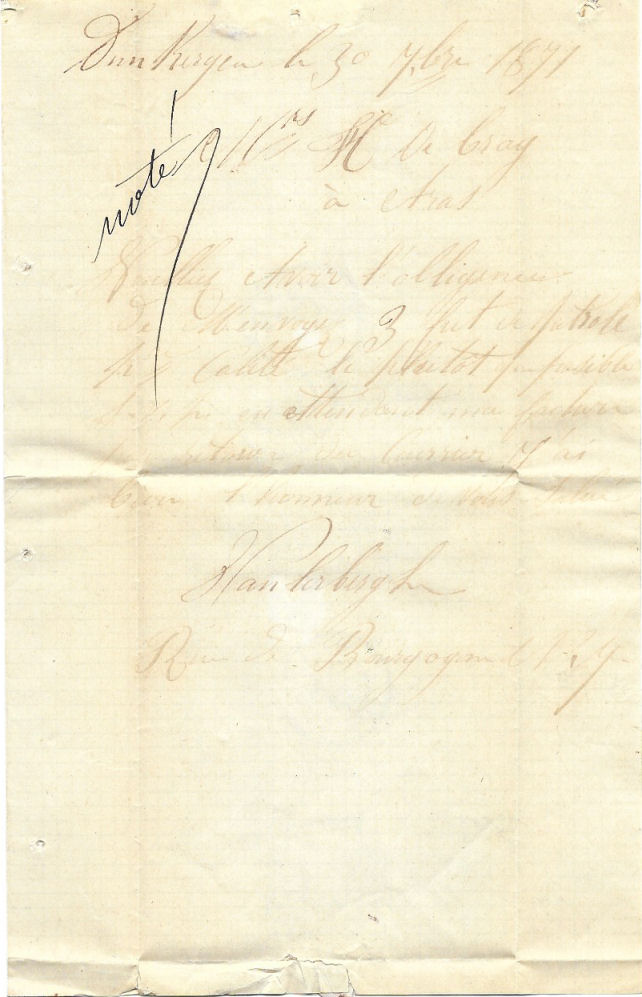 Dunkerque le 30 7bre 1871
noté
Mrs
à Aras
Veuillez Avoir l'obligence
de M'envoye 3 fut de petrole
le plutot que posible
en attendent ma facture
retour du Courrier J'ai
l'honneur de Vous Salue
Vanderberghe
Rue de Bourgogne